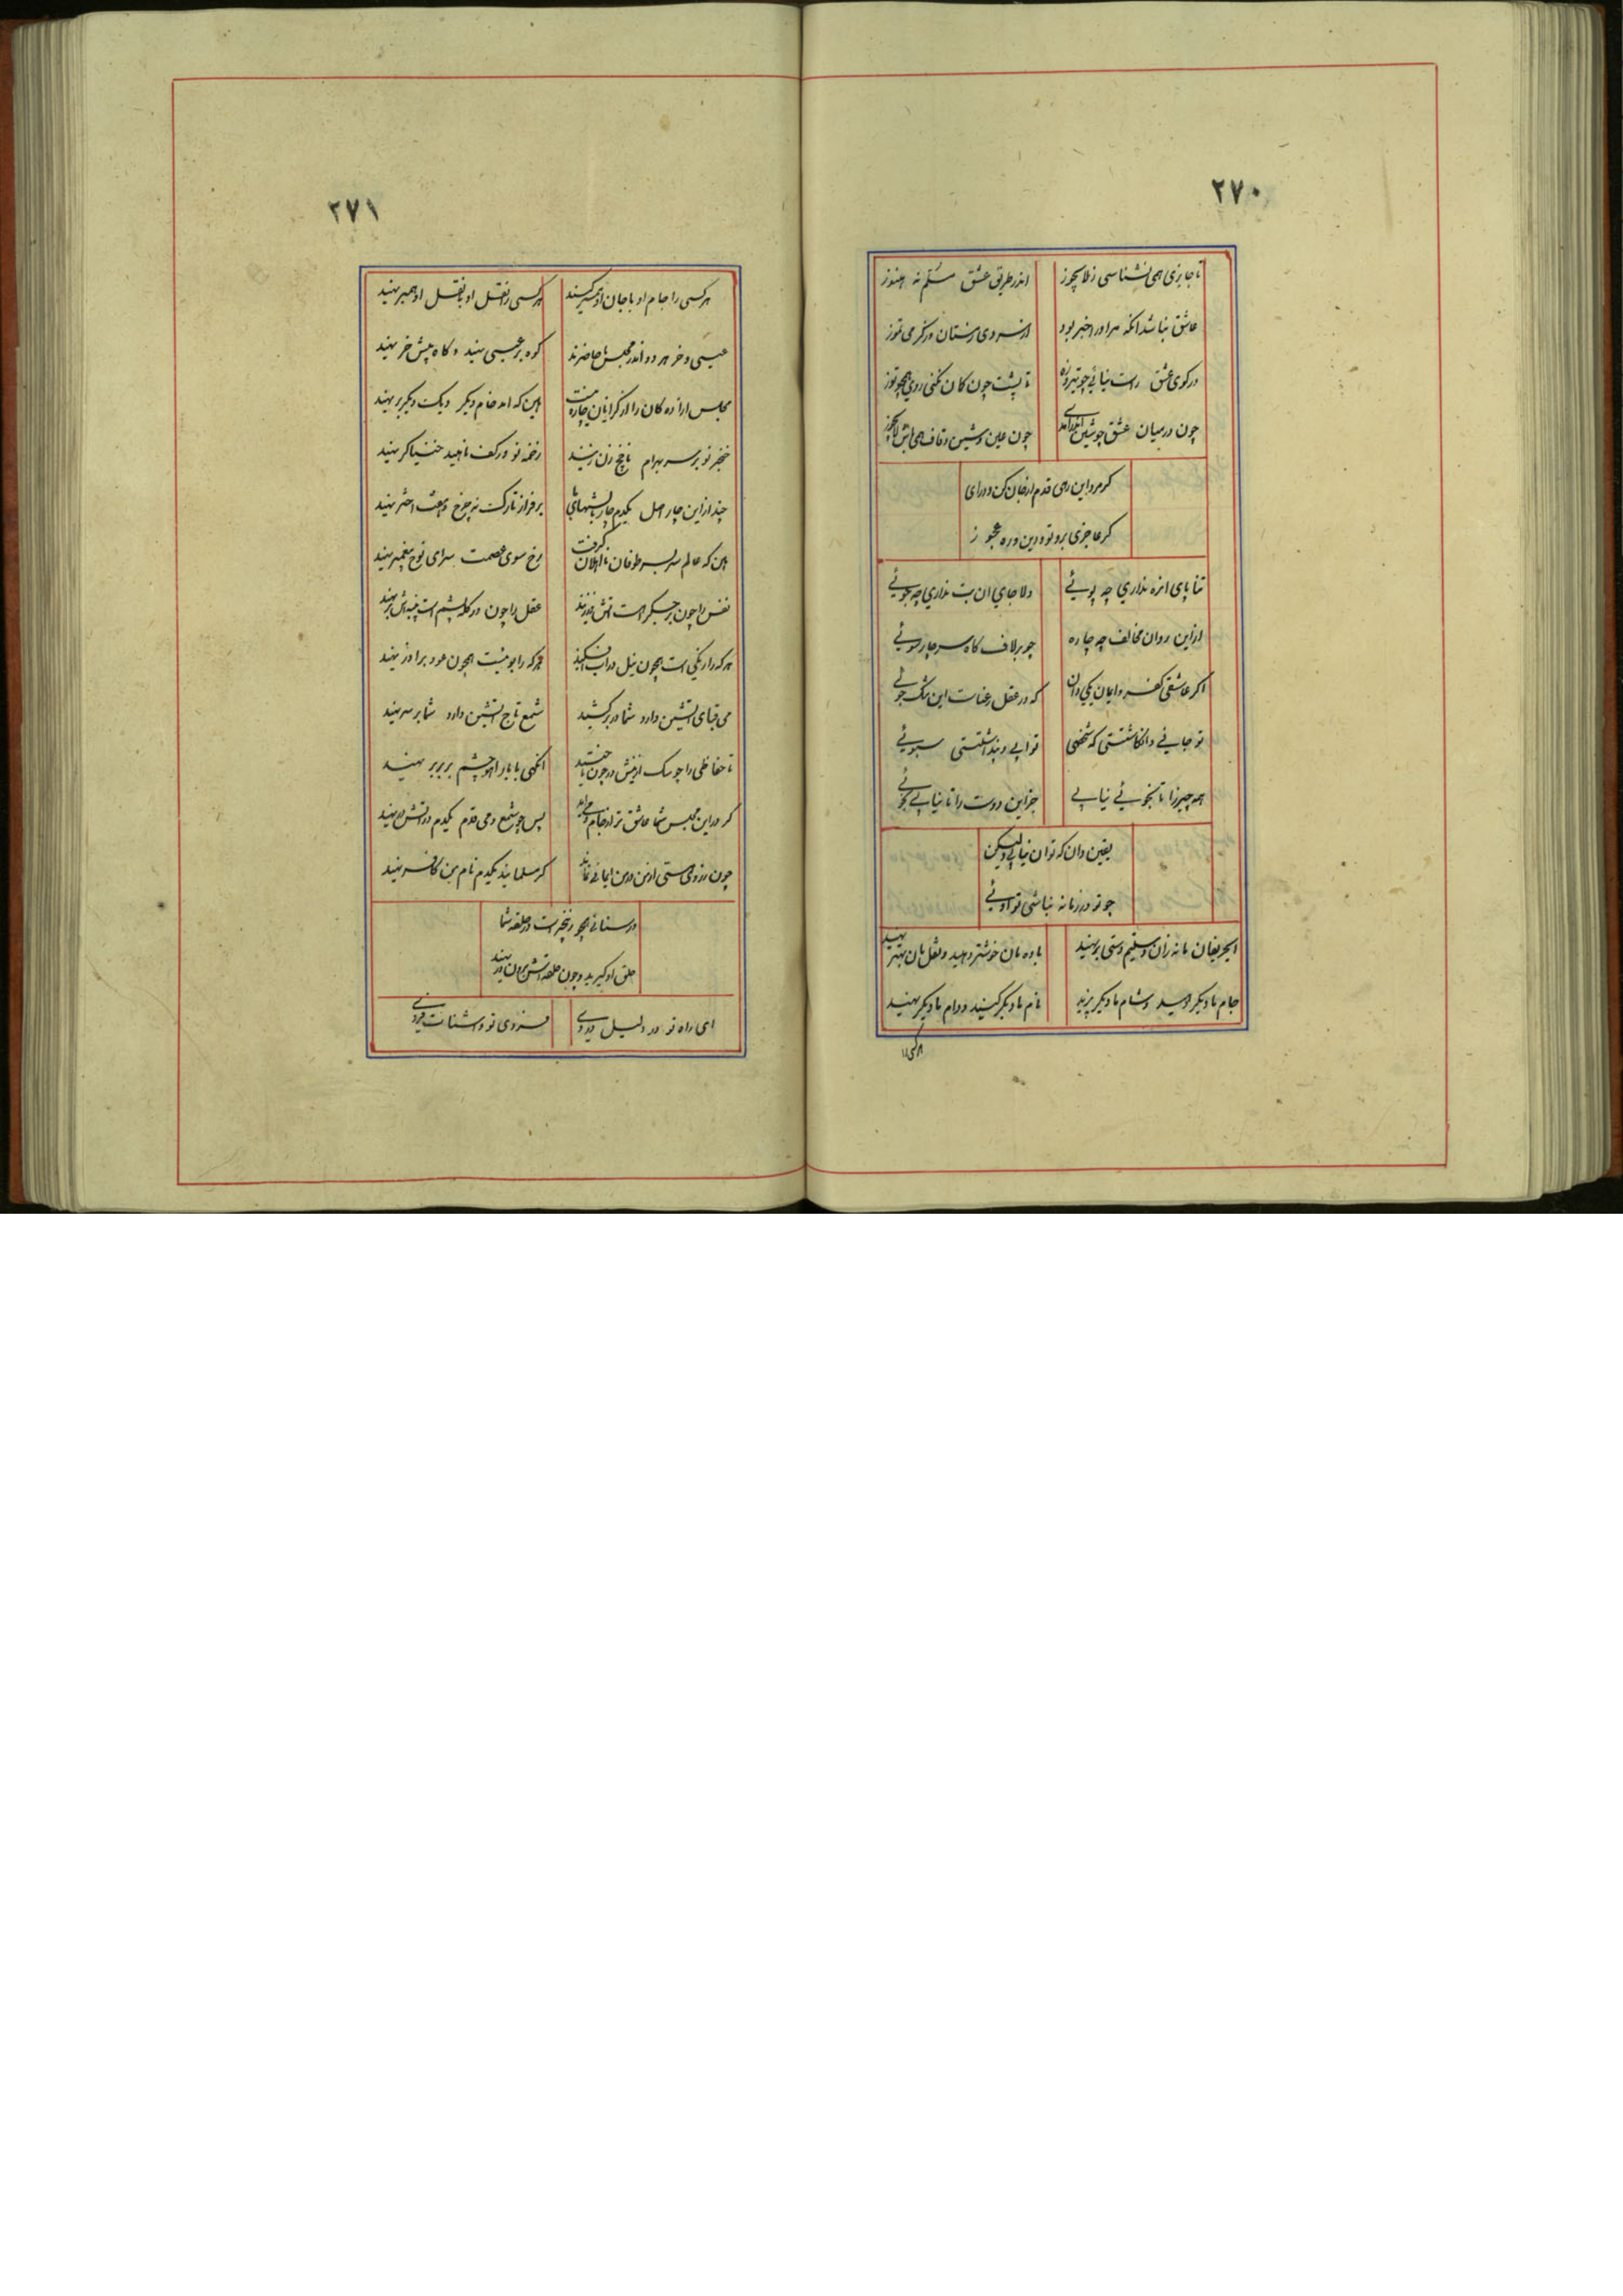 ٢٧٠
تا جایزی همی نشناسی ز لایجوز اندر طریق عشق مسلم نه هنوز
عاشق نباشد آنکه مر او را خبر بود از سردی زمستان وز گرمی تموز
در کوی عشق راست نیائی چو تیر و زه تا پشت چون کمان نکنی روی همچو توز
چون در میان عشق چو شین اندر آمدی چون عین و شین و قاف همی باش
گر مرد این رهی قدم از جان کن و درای
گر عاجزی برو تو و دین و ره عجوز
تنا پای این ره نداری چه پوئی دلا جای آن بت نداری چه جوئی
ازین روان مخالف چه چاره چو بر لاف گاه سر چار سوئی
اگر عاشقی کفر و ایمان یکی دان که در عقل رعناست این تنگ خوئی
تو جانی و انگاشتستی که شخصی تو آبی و پنداشتستی سبوئی
همه چیز را تا نجوئی نیابی جز این دوست را تا نیابی نجوئی
یقین دان که تو آن نیابی ولیکن
چو تو در زمانه نباشی تو اوئی
ای حریفان ما نه زان دستیم دستی بر نهید باده مان خوشتر دهید و نقل مان بهتر نهید
جام ما دیگر دهید و شام ما دیگر پزید نام ما دیگر کنید و دام ما دیگر نهید
هر کسی را
٢٧١
هر کسی را جام او با جان او همبر کنید هر کسی را نقل او با نقل او همبر نهید
عیسی و خر هر دو اندر مجلس ما حاضرند کوه بر عیسی نهید و کاه پیش خر نهید
مجلس آزاده گان را از گرانان چاره نیست هین که آمد خام دیگر دیگ دیگر بر نهید
خنجر نو بر سر بهرام ناچخ زن زنید زخمه نو در کف ناهید خنیاگر نهید
چند ازین چار اصل یکدم چار بالشتهای ما بر فراز تارک نه چرخ و هفت اختر نهید
هین که عالم سر بسر طوفان نا اهلان گرفت رخ سوی عصمت سرای نوح پیغمبر نهید
نفس را چون بر جگر آبست آتش در زنید عقل را چون در کله پشم است پنبه اش بر نهید
هر که را رنگی است همچون نیل در آب افکنید هر که را بوئیست همچون عود بر آذر نهید
می قبای آتشین دارد شما در بر کشید شمع تاج آتشین دارد شما بر سر نهید
تا حفاظی را چو سگ از پیش در چون انگهی با یار آهو چشم بر بر بر نهید
گر در این مجلس شما عاشق تر از جام می اید پس چو شمع و می قدم یکدم در آتش در نهید
چون ز روی مستی از من دین و ایمانی نماند گر مسلمانید یکدم نام من کافر نهید
در سنائی همچو زنجیر است در حلقه شما
حلق او گیرید و چون حلقه اش برون در نهید
ای راه تو در دلیل دردی فردی تو و آشنات فردی